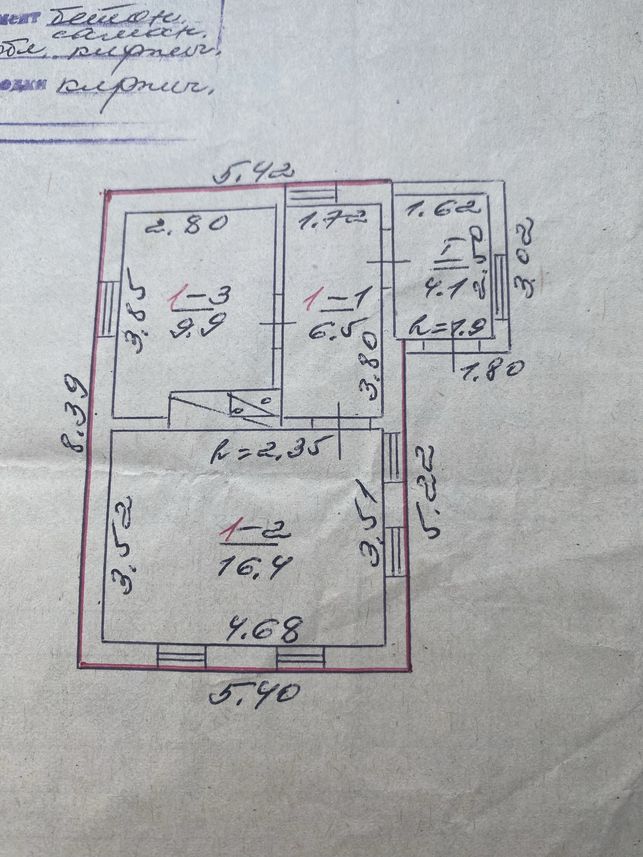 бетон.
саман.
обл. кирпич.
кирпич.
5.42
2.80
1.72
1.62
3.85
1-3
9.9
1-1
6.5
3.80
I
4.1
2.50
3.02
h=1.9
1.80
8.39
h=2.35
3.52
1-2
16.4
3.51
5.22
4.68
5.40